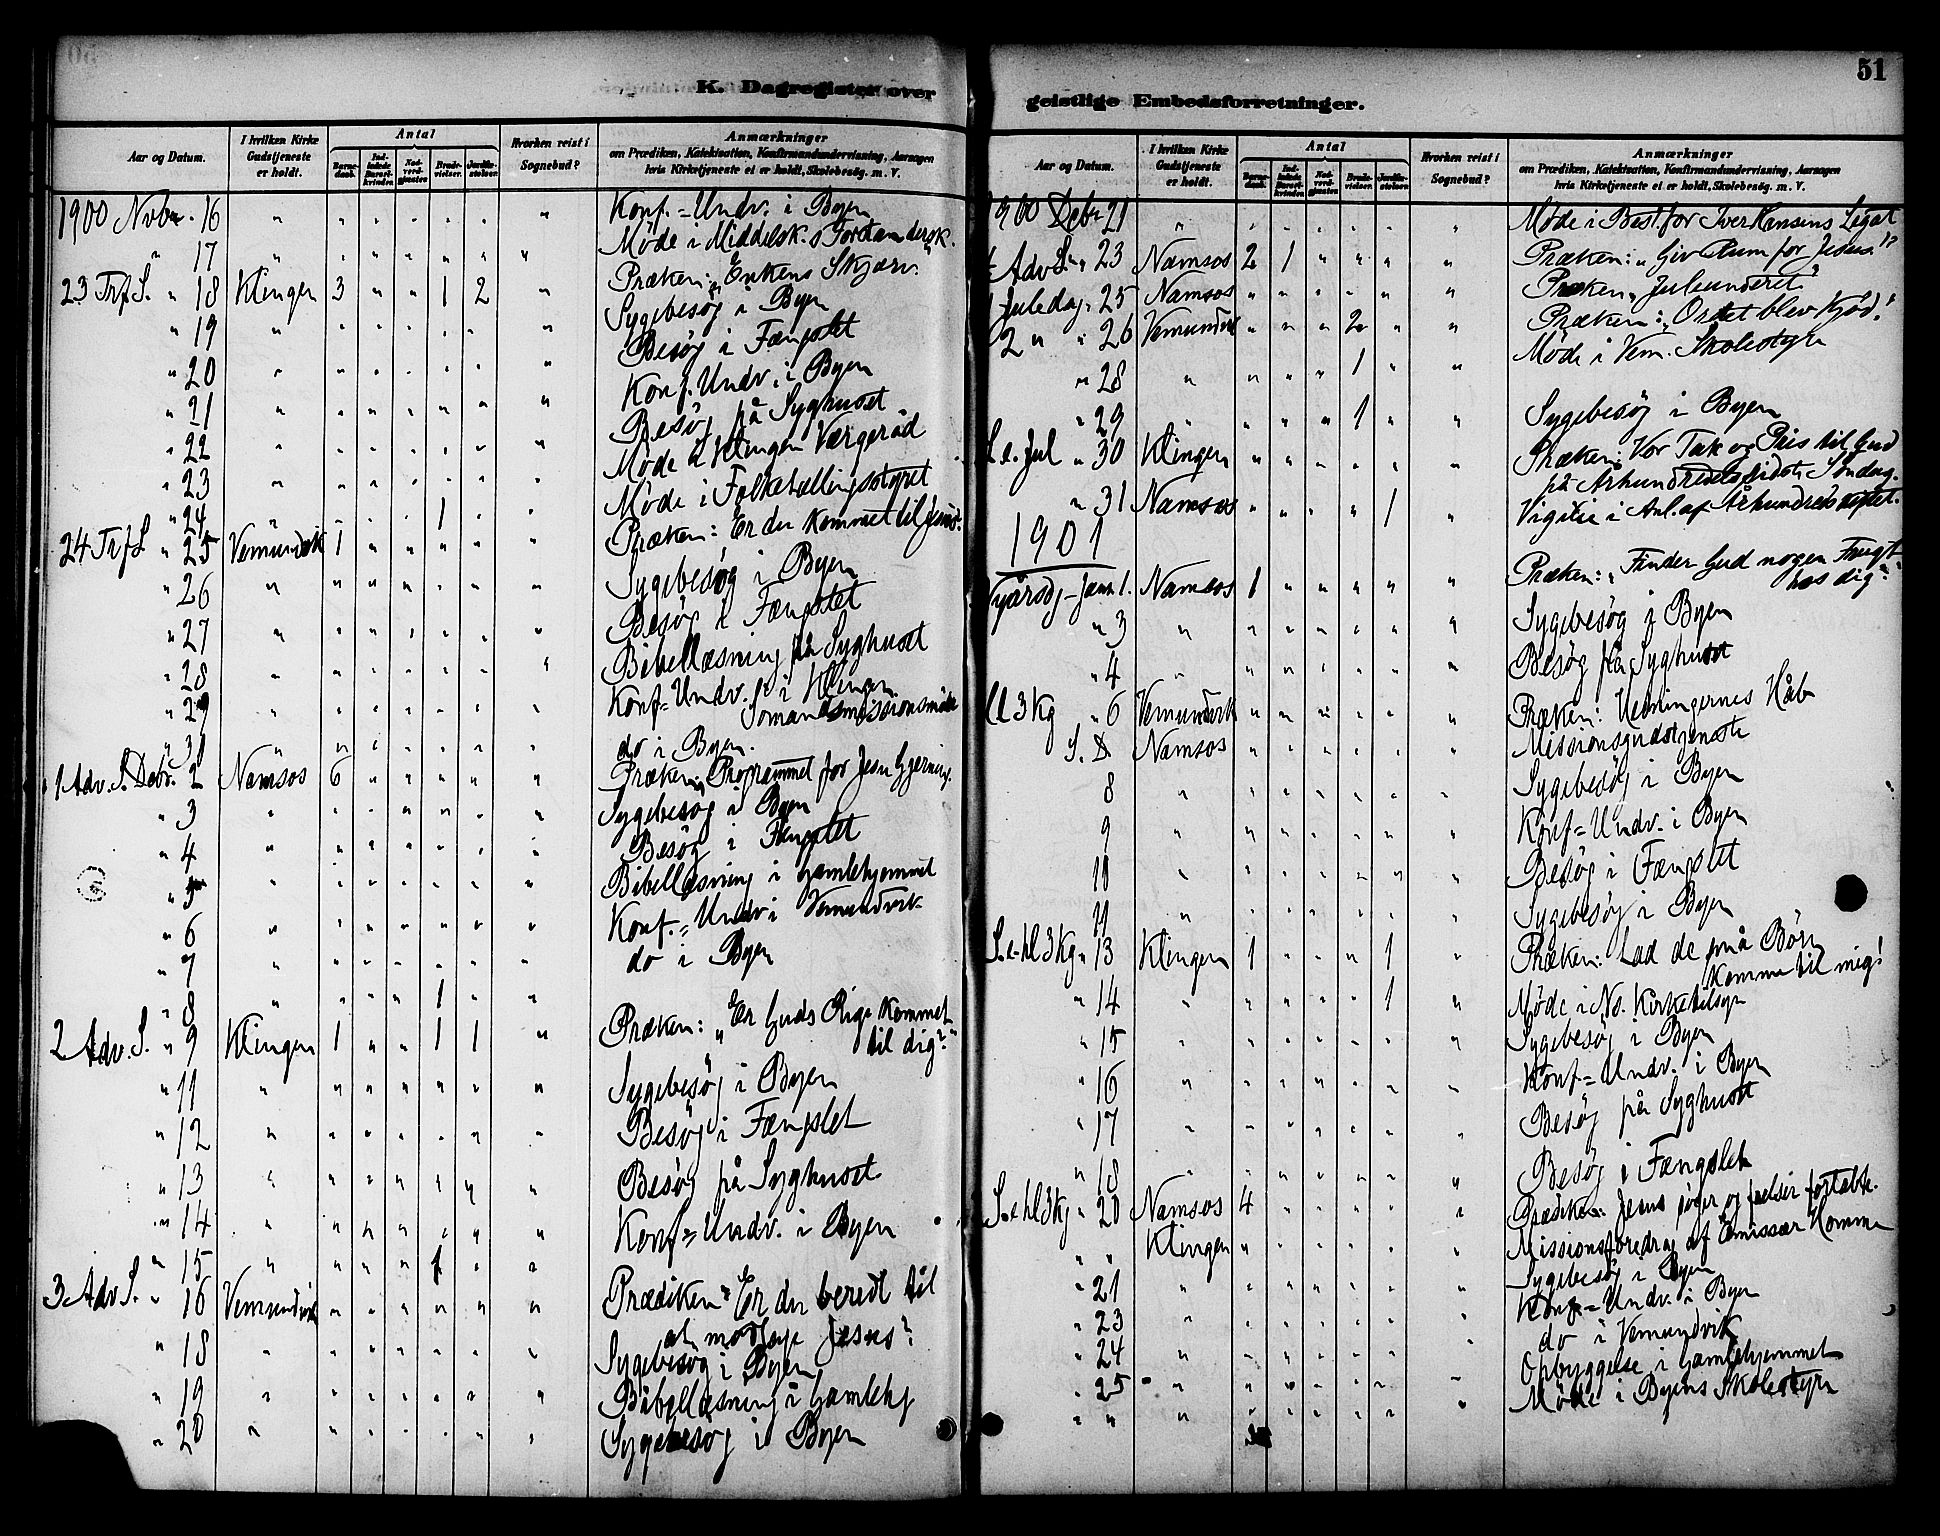 K. Dagregister over
Aar og Datum.
I hvilken Kirke Gudstjeneste er holdt.
Antal
Barnedaab.
Indledede Barselkvinder.
Nadverdgjæster.
Brudevielser.
Jordfæstelser.
Hvorhen reist i Sognebud?
Anmærkninger
om Prædiken, Katekisation, Konfirmandundervisning, Aarsagen
hvis Kirketjeneste ei er holdt, Skolebesøg. m. V.
1900 Novbr. 16 " " " " " " " Konf.=Undv. i Byen
" 17 " " " " " " " Møde i Middelsk.s Forstandersk.
23 Trf S. " 18 Klingen 3 " " 1 2 " Præken: „Enkens Skjærv"
" 19 " " " " " " " Sygebesøg i Byen
" 20 " " " " " " " Besøg i Fængslet
" 21 " " " " " " " Konf. Undv. i Byen
" 22 " " " " " " " Besøg på Syghuset
" 23 " " " " " " " Møde i Klingen Værgeråd
" 24 " " " " 1 " " Møde i Folketællingsstyret
24 Trf S " 25 Vemundvik 1 " " " " " Præken: Er du kommet til Jesus?
" 26 " " " " " " " Sygebesøg i Byen
" 27 " " " " " " " Besøg i Fængslet
" 28 " " " " " " " Bibellæsning på Syghuset
" 29 " " " " " " " Konf=Undv. i Klingen
Sømandsmissionsmøde
" 30 " " " " " " " do i Byen.
1 Adv. S. Debr. 2 Namsos 6 " " " " " Præken: „Programmet for Jesu Gjerning.
" 3 " " " " " " " Sygebesøg i Byen
" 4 " " " " " " " Besøg i Fængslet
" 5 " " " " " " " Bibellæsning i Gamlehjemmet
" 6 " " " " " " " Konf.=Undv i Vemundvik
" 7 " " " " " " " do i Byen
" 8 " " " " 1 " "
2 Adv. S. " 9 Klingen 1 " " 1 1 " Præken: „Er Guds Rige kommet
til dig?"
" 11 " " " " " " " Sygebesøg i Byen
" 12 " " " " " " " Besøg i Fængslet
" 13 " " " " " " " Besøg på Syghuset
" 14 " " " " " " " Konf=Undv. i Byen
" 15 " " " " 1 " "
3 Adv S. " 16 Vemundvik " " " " " " Prædiken „Er du beredt til
at modtage Jesus?
" 18 " " " " " " " Sygebesøg i Byen
" 19 " " " " " " " Bibellæsning i Gamlehj
" 20 " " " " " " " Sygebesøg i Byen
51
geistlige Embedsforretninger.
Aar og Datum.
I hvilken Kirke Gudstjeneste er holdt.
Antal
Barnedaab.
Indledede Barselkvinder.
Nadverdgjæster.
Brudevielser.
Jordfæstelser.
Hvorhen reist i Sognebud?
Anmærkninger
om Prædiken, Katekisation, Konfirmandundervisning, Aarsagen
hvis Kirketjeneste ei er holdt, Skolebesøg. m. V.
1900 Debr 21 " " " " " " " Møde i Best. for Iver Hansens Legat
4 Adv S. " 23 Namsos 2 1 " " " " Præken: „Giv Rum for Jesus!"
1 Juledag " 25 Namsos " " " " " " Præken „Juleunderet"
2 " " 26 Vemundvik " " " 2 " " Præken: „Ordet blev Kjød."
" 28 " " " " 1 " " Møde i Vem. Skolestyre
" 29 " " " " 1 " " Sygebesøg i Byen
S. e. Jul " 30 Klingen " " " " " " Præken: Vor Tak og Pris til Gud
på Århundredets sidste Søndag.
" 31 Namsos " " " " 1 " Vigilie i Anl. af Århundredskiftet.
1901
Nyårsdg Janr 1. Namsos 1 " " " " " Præken: „Finder Gud nogen Frugt
hos dig?"
" 3 " " " " " " " Sygebesøg i Byen
" 4 " " " " " " " Besøg på Syghuset
Hl 3 kg " 6 Vemundvik " " " " " " Præken: Hedningernes Håb
S. D Namsos " " " " " " Missionsgudstjeneste
8 " " " " " " " Sygebesøg i Byen
9 " " " " " " " Konf=Undv. i Byen
10 " " " " " " " Besøg i Fængslet
11 " " " " " " " Sygebesøg i Byen
S. e. hl 3 kg " 13 Klingen 1 " " " 1 " Præken: Lad de små Børn
komme til mig!
" 14 " " " " " 1 " Møde i Ns. Kirketilsyn
" 15 " " " " " " " Sygebesøg i Byen
" 16 " " " " " " " Konf=Undv. i Byen
" 17 " " " " " " " Besøg på Syghuset
" 18 " " " " " " " Besøg i Fængslet
S. e hl 3 kg " 20 Namsos 4 " " " " " Prædiken: Jesus søger og frelser fortabte.
" " Klingen " " " " " " Missionsforedrag af Emissær
" 21 " " " " " " " Sygebesøg i Byen
" 23 " " " " " " " Konf=Undv. i Byen
" 24 " " " " " " " do i Vemundvik
" 25 " " " " " " " Opbyggelse i Gamlehjemmet
" " " " " " " " " Møde i Byens Skolestyre